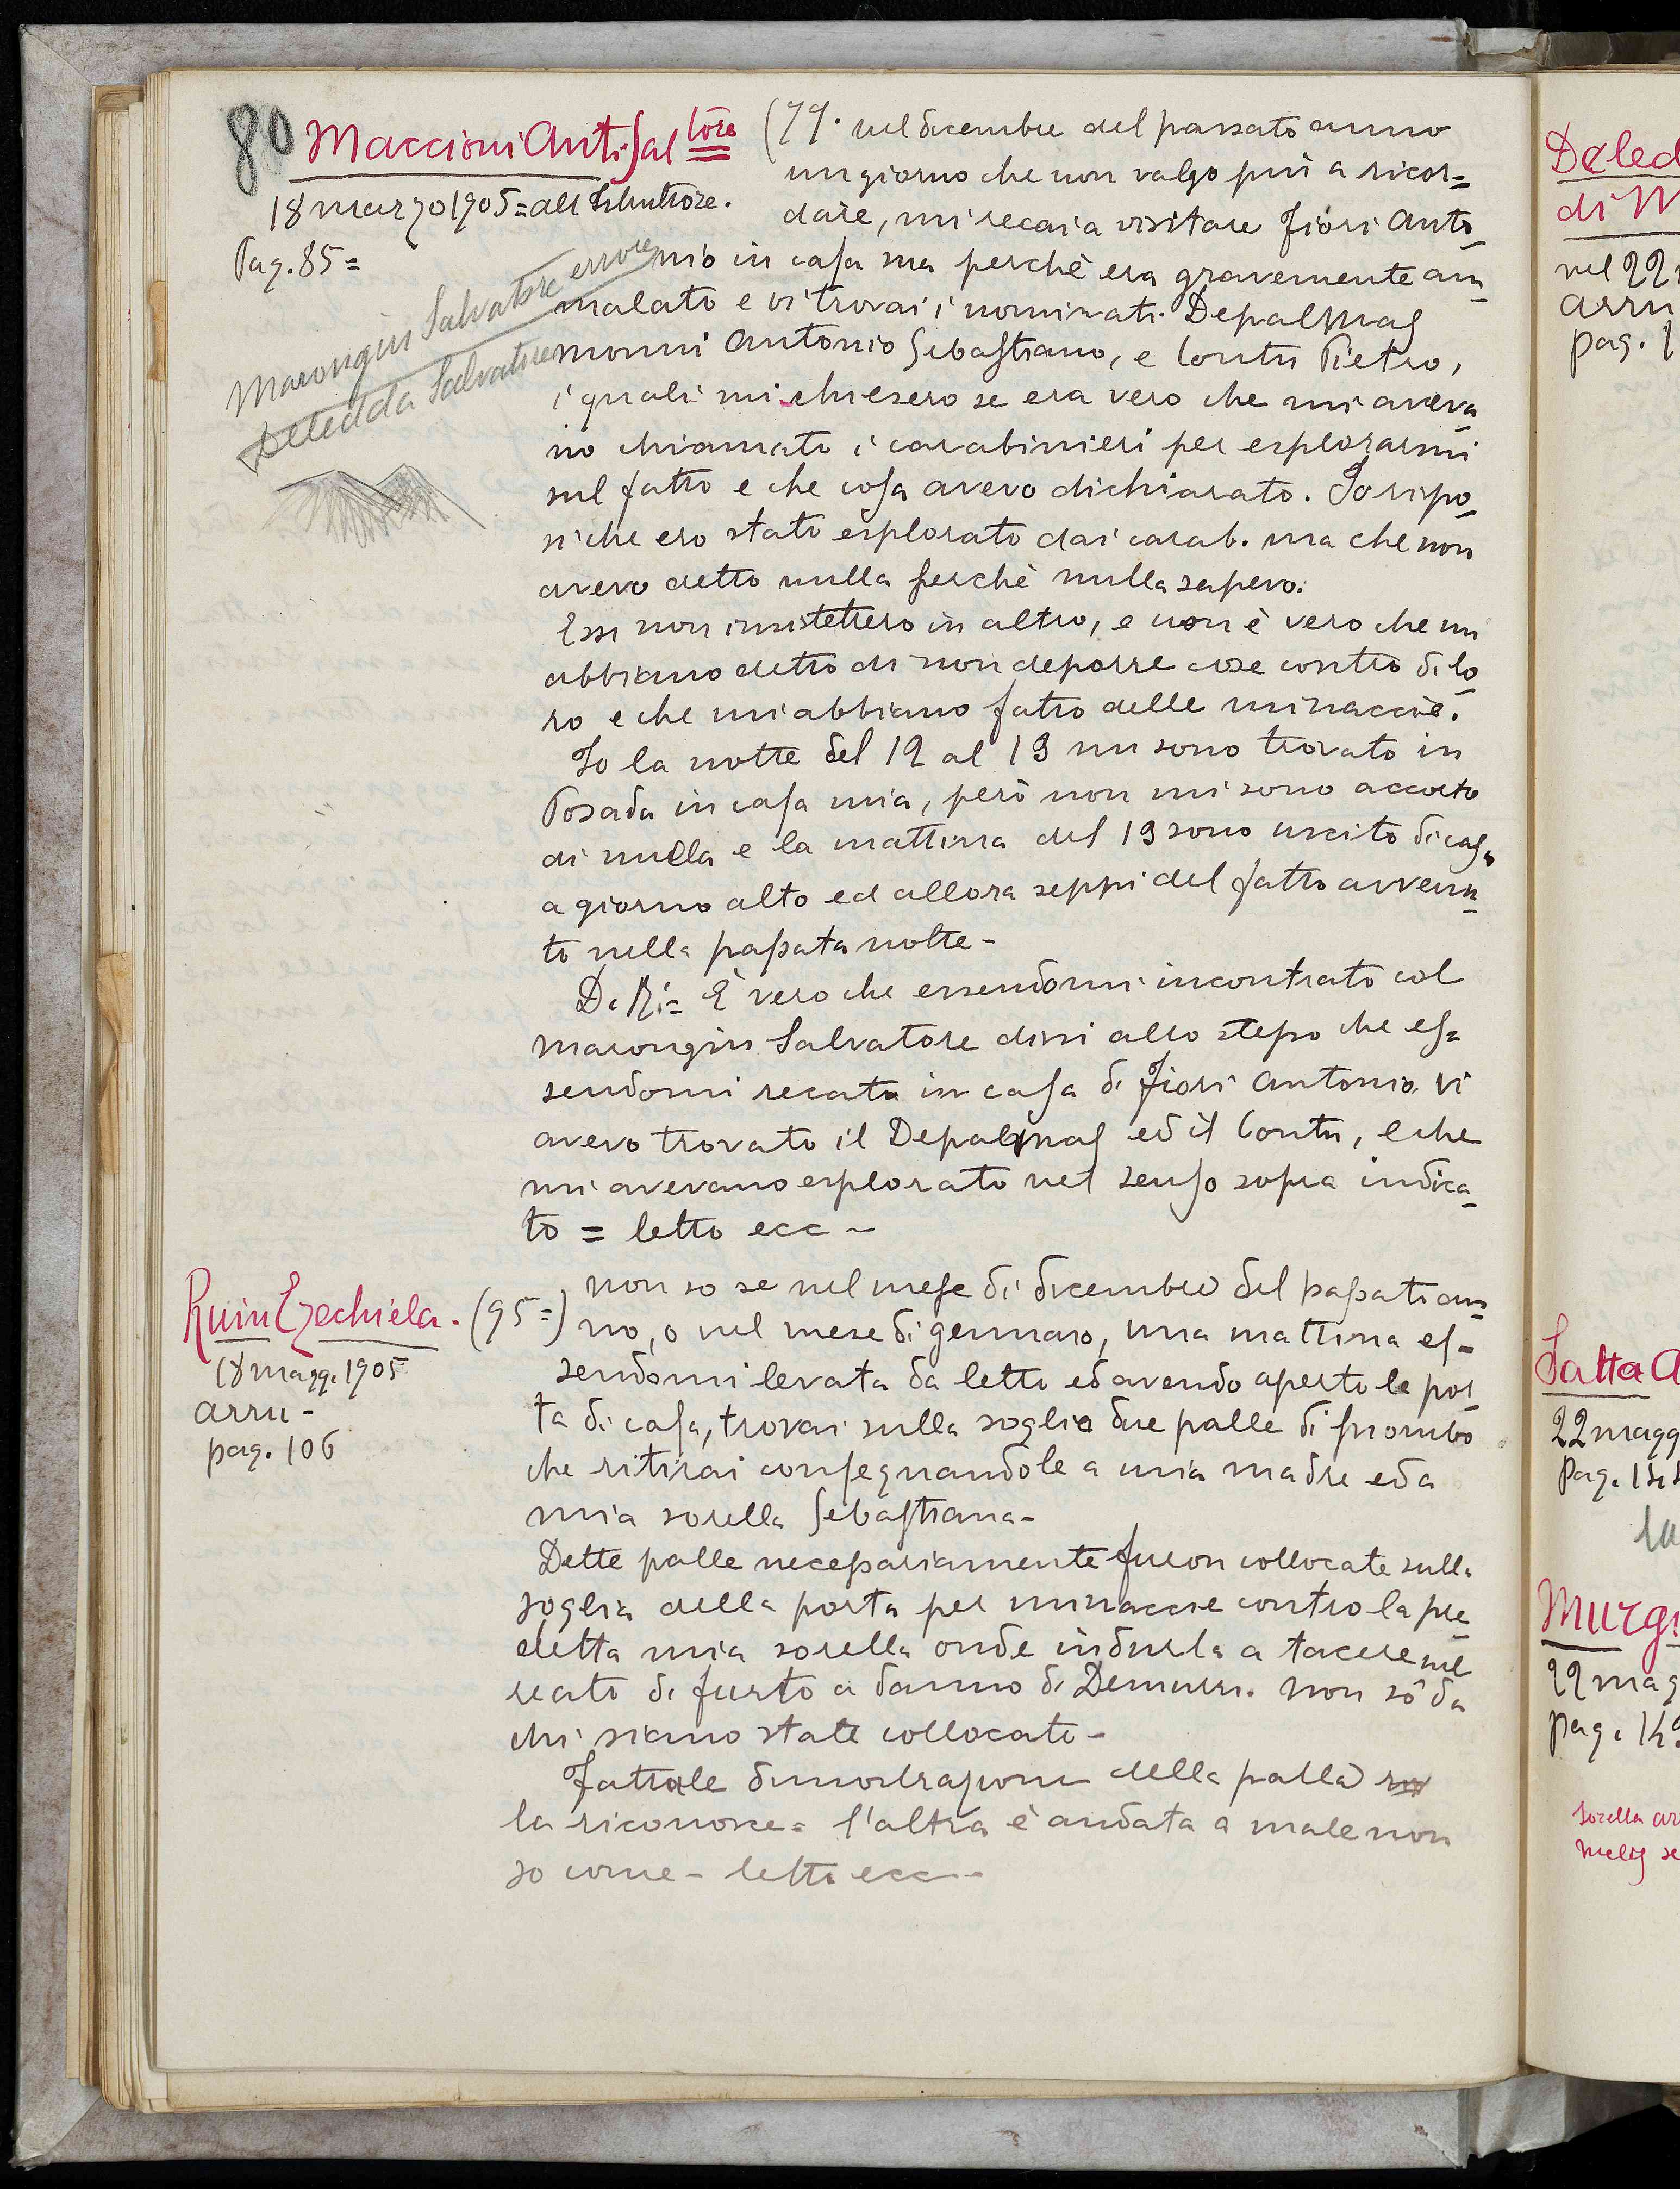 80 Maccioni Ant.Salтore
18 marzo 1905 = all'Istruttore.
Pag. 85 =
Marongiu Salvatore errore
Deledda Salvatore
(79. nel dicembre del passato anno
un giorno che non valgo più a ricor=
dare, mi recai a visitare Fiori Anto
nio in casa sua perchè era gravemente am
malato e vi trovai i nominati Depalmas
monni Antonio Sebastiano, e Contu Pietro,
i quali mi chiesero se era vero che mi aveva
no chiamato i carabinieri per esplorarmi
sul fatto e che cosa avevo dichiarato. Io rispo
si che ero stato esplorato dai carab. ma che non
avevo detto nulla perchè nulla sapevo.
Essi non insistettero in altro, e non è vero che mi
abbiano detto di non deporre cose contro di lo
ro e che mi abbiano fatto delle minaccie.
Io la notte del 12 al 13 mi sono trovato in
Posada in casa mia, però non mi sono accorto
di nulla e la mattina del 13 sono uscito di casa
a giorno alto ed allora seppi del fatto avvenu
to nella passata notte -
D. R. = È vero che essendomi incontrato col
Marongiu Salvatore dissi allo stesso che es=
sendomi recato in casa di Fiori Antonio vi
avevo trovato il Depalmas ed il Contu, e che
mi avevano esplorato nel senso sopra indica
to = letto ecc -
Ruiu Ezechiela.
18 magg. 1905
arru -
pag. 106
(95=) non so se nel mese di dicembre del passato an
no, o nel mese di gennaro, una mattina es=
sendomi levata da letto ed avendo aperto la por
ta di casa, trovai sulla soglia due palle di piombo
che ritirai consegnandole a mia madre ed a
mia sorella Sebastiana -
Dette palle necessariamente furon collocate sulla
soglia della porta per minaccie contro la pre
detta mia sorella onde indurla a tacere nel
reato di furto a danno di Demurs. Non sò da
chi siano state collocate -
Fattale dimostrazione della palla
la riconosce = l'altra è andata a male non
so come - letto ecc -
Deled
di M
nel 22
arru
pag. 1
Satta A
22 magg
Murgi
22 mag
sorella ar
melis se